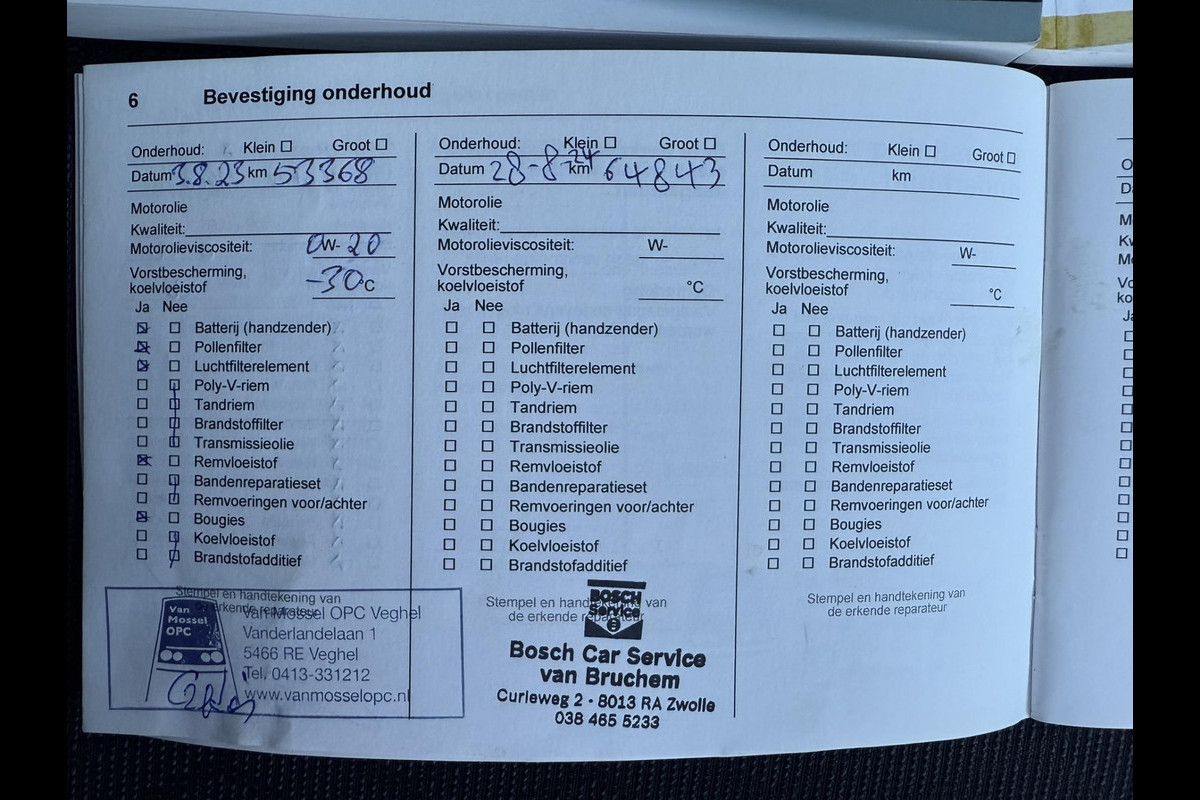 6 Bevestiging onderhoud
Onderhoud: Klein Groot
Datum 3.8.23 km 53368
Motorolie
Kwaliteit:
Motorolieviscositeit: 0W-20
Vorstbescherming,
koelvloeistof -30°C
Ja Nee
Batterij (handzender)
Pollenfilter
Luchtfilterelement
Poly-V-riem
Tandriem
Brandstoffilter
Transmissieolie
Remvloeistof
Bandenreparatieset
Remvoeringen voor/achter
Bougies
Koelvloeistof
Brandstofadditief
Stempel en handtekening van
de erkende reparateur
Van
Mossel
OPC
Van Mossel OPC Veghel
Vanderlandelaan 1
5466 RE Veghel
Tel. 0413-331212
www.vanmosselopc.nl
Onderhoud: Klein Groot
Datum 28-8-24 km 64843
Motorolie
Kwaliteit:
Motorolieviscositeit: W-
Vorstbescherming,
koelvloeistof °C
Ja Nee
Batterij (handzender)
Pollenfilter
Luchtfilterelement
Poly-V-riem
Tandriem
Brandstoffilter
Transmissieolie
Remvloeistof
Bandenreparatieset
Remvoeringen voor/achter
Bougies
Koelvloeistof
Brandstofadditief
Stempel en handtekening van
de erkende reparateur
BOSCH
Service
Bosch Car Service
van Bruchem
Curieweg 2 - 8013 RA Zwolle
038 465 5233
Onderhoud: Klein Groot
Datum km
Motorolie
Kwaliteit:
Motorolieviscositeit: W-
Vorstbescherming,
koelvloeistof °C
Ja Nee
Batterij (handzender)
Pollenfilter
Luchtfilterelement
Poly-V-riem
Tandriem
Brandstoffilter
Transmissieolie
Remvloeistof
Bandenreparatieset
Remvoeringen voor/achter
Bougies
Koelvloeistof
Brandstofadditief
Stempel en handtekening van
de erkende reparateur